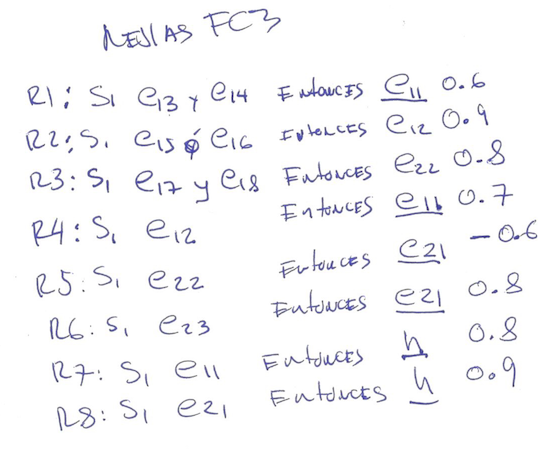 Reglas FC3
R1: Si e13 y e14 Entonces e11 0.6
R2: Si e15 ó e16 Entonces e12 0.9
R3: Si e17 y e18 Entonces e22 0.8
R4: Si e12 Entonces e11 0.7
R5: Si e22 Entonces e21 -0.6
R6: Si e23 Entonces e21 0.8
R7: Si e11 Entonces h 0.8
R8: Si e21 Entonces h 0.9